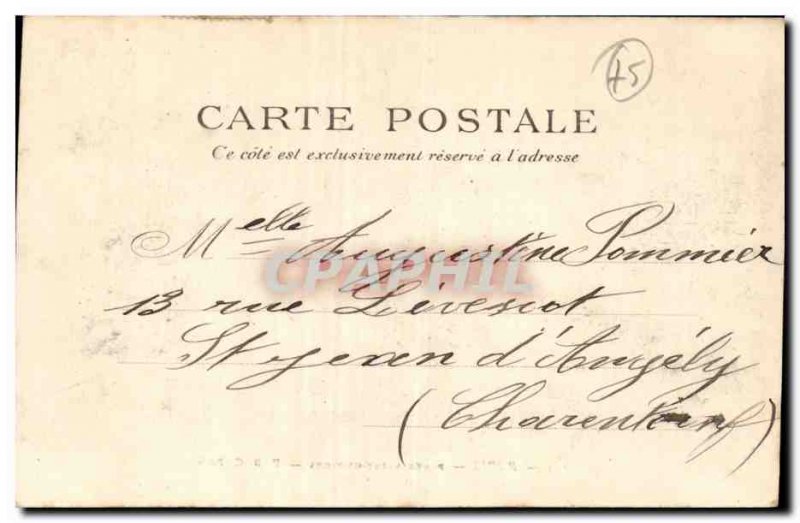 45
CARTE POSTALE
Ce côté est exclusivement réservé a l'adresse
Melle Augustine Pommier
CPAPHIL
13 rue Lévescot
St Jean d'Angély
(Charente inf)